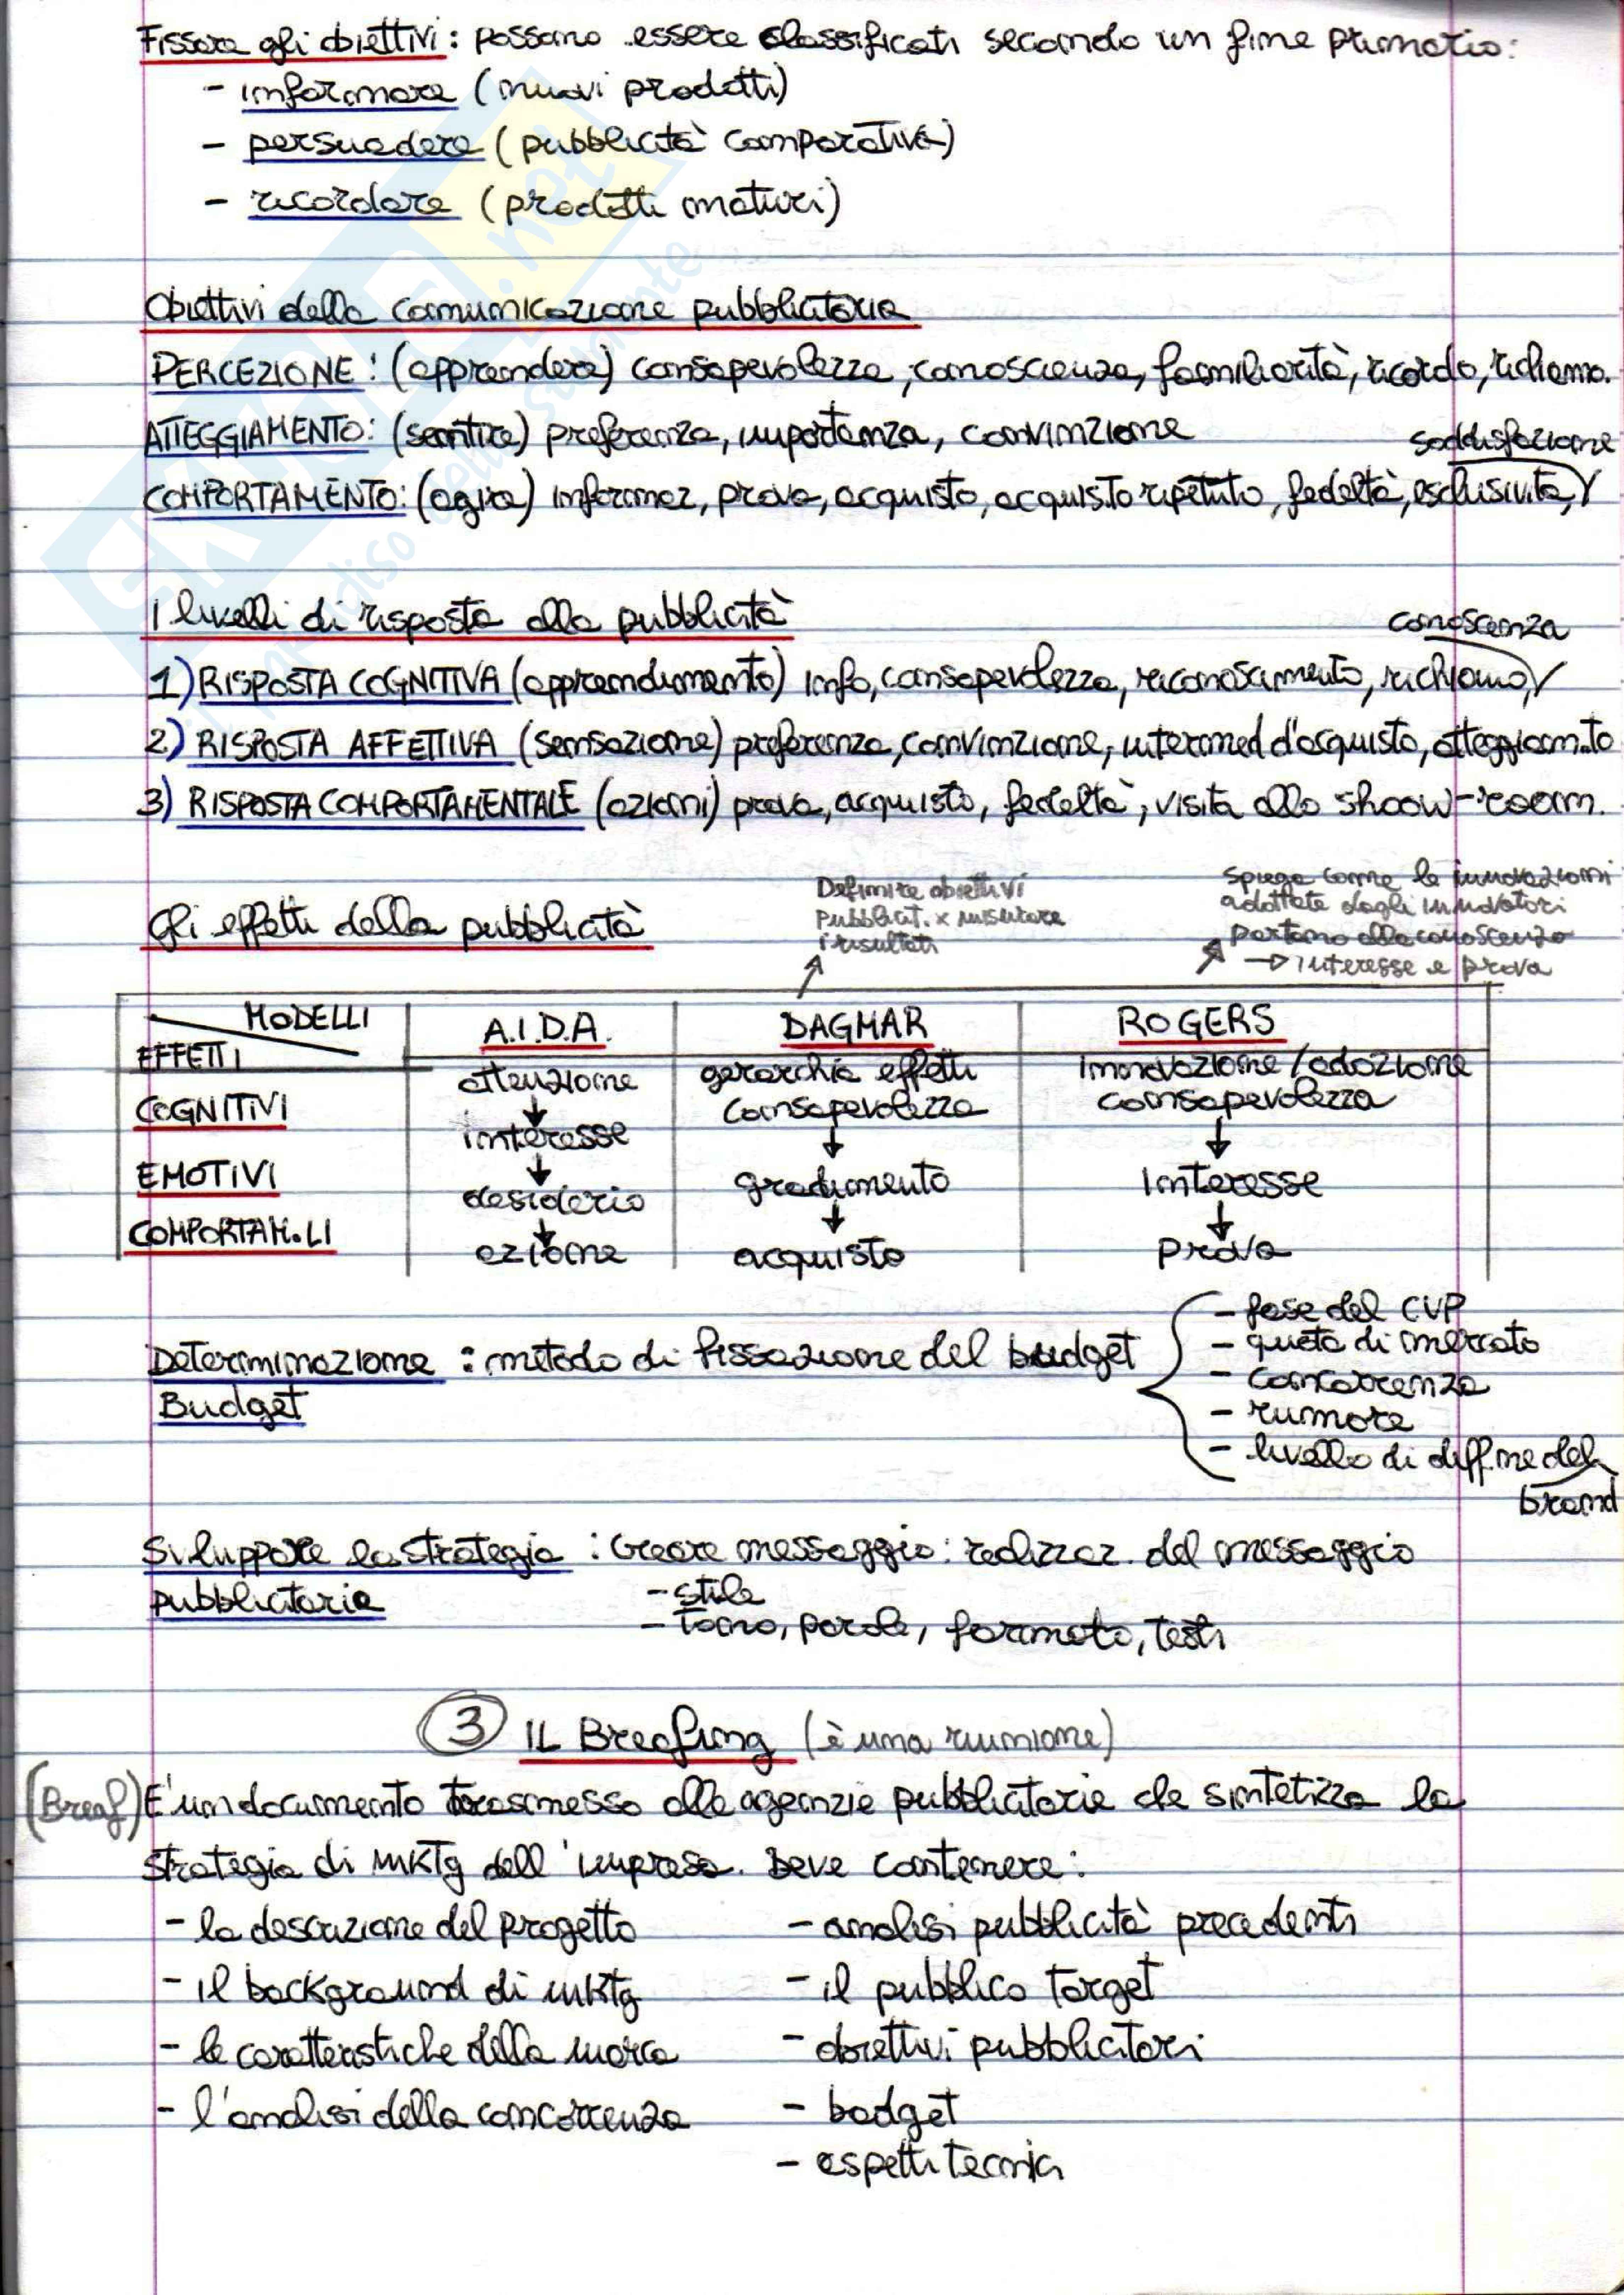 Fissare gli obiettivi: possono essere classificati secondo un fine primario:
- informare (nuovi prodotti)
- persuadere (pubblicità comparativa)
- ricordare (prodotti maturi)
Obiettivi della comunicazione pubblicitaria
PERCEZIONE: (apprendere) consapevolezza, conoscienza, familiarità, ricordo, richiamo.
ATTEGGIAMENTO: (sentire) preferenza, importanza, convinzione
soddisfazione
COMPORTAMENTO: (agire) informaz, prova, acquisto, acquisto ripetuto, fedeltà, esclusività,
I livelli di risposta alla pubblicità
conoscenza
1) RISPOSTA COGNITIVA (apprendimento) info, consapevolezza, riconoscimento, richiamo,
2) RISPOSTA AFFETTIVA (sensazione) preferenza, convinzione, d'acquisto, atteggiam.to
3) RISPOSTA COMPORTAMENTALE (azioni) prova, acquisto, fedeltà, visita allo show-room.
Gli effetti della pubblicità
Definire obiettivi
pubblicit. x misurare
i risultati
Spiega come le innovazioni
adottate dagli innovatori
portano alla conoscenza
→ interesse e prova
MODELLI
EFFETTI
A.I.D.A. DAGMAR ROGERS
attenzione gerarchia effetti innovazione/adozione
COGNITIVI ↓ consapevolezza consapevolezza
interesse ↓ ↓
EMOTIVI ↓ gradimento interesse
desiderio ↓ ↓
COMPORTAM.LI ↓
azione acquisto prova
Determinazione : metodo di fissazione del budget
Budget
- fase del CVP
- quota di mercato
- concorrenza
- rumore
- livello di diff.ne del
brand
Sviluppare la strategia : Creare messaggio: realizzaz. del messaggio
pubblicitaria
- stile
- tono, parole, formato, testi
3 IL Breafing (è una riunione)
(Breaf) E' un documento trasmesso alle agenzie pubblicitarie che sintetizza la
strategia di mktg dell'impresa. Deve contenere:
- la descrizione del progetto
- il background di mktg
- le caratteristiche della marca
- l'analisi della concorrenza
- analisi pubblicità precedenti
- il pubblico target
- obiettivi pubblicitari
- badget
- aspetti tecnici
SKUOLA.net
il paradiso dello studente